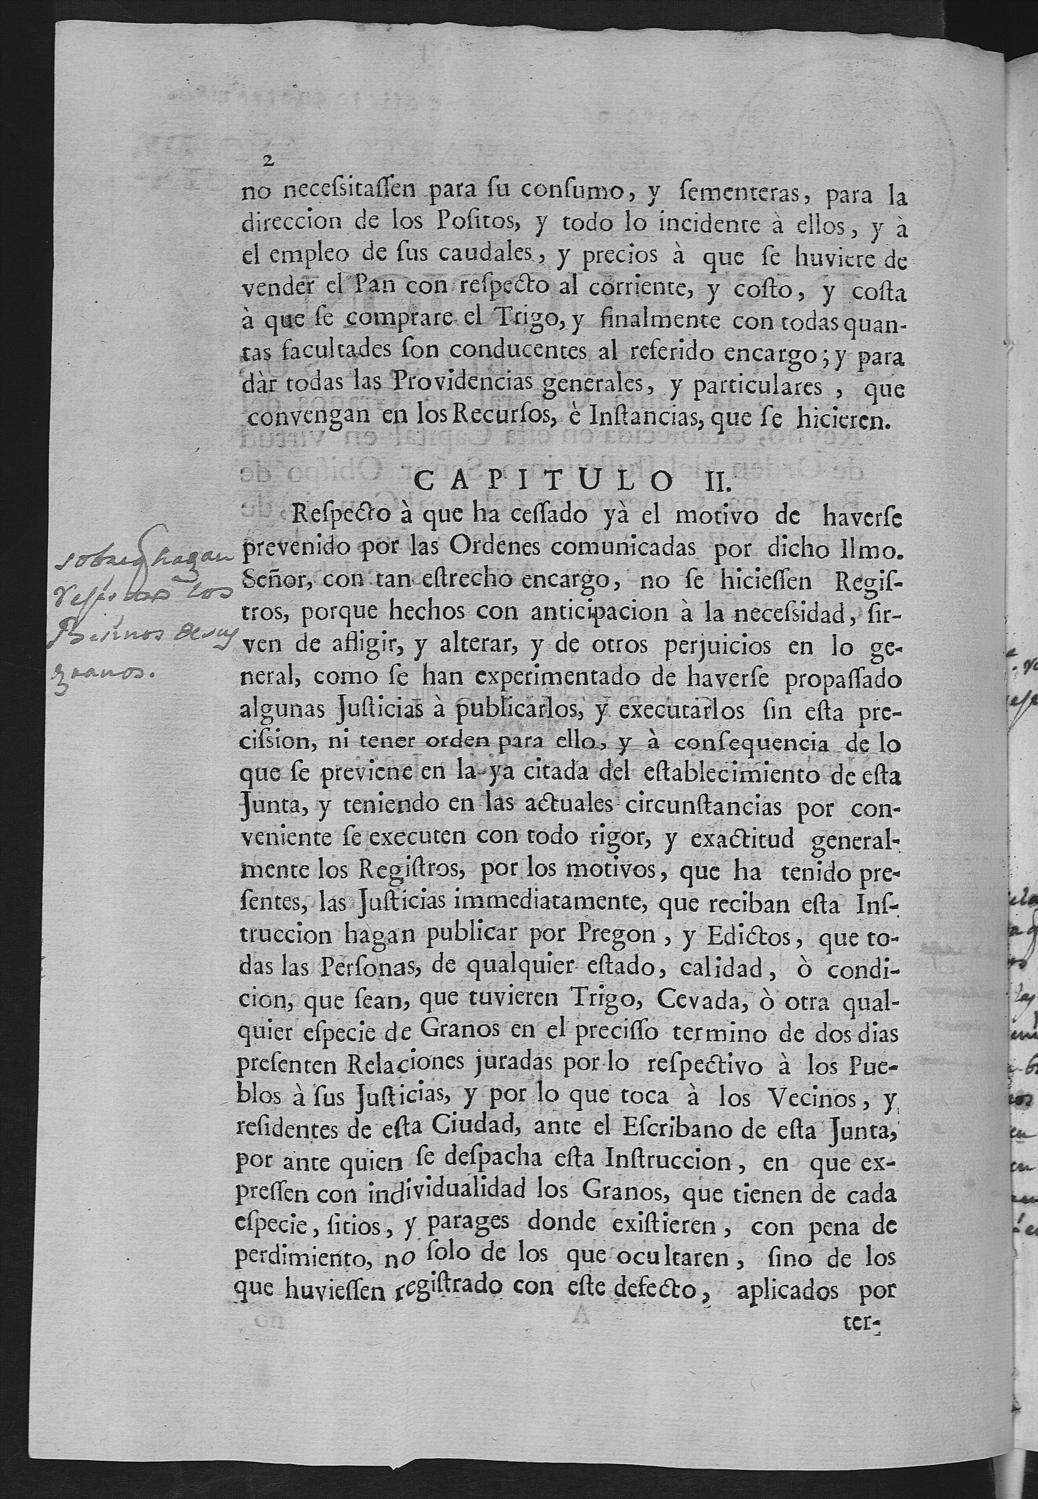 2
no necesſitaſſen para ſu conſumo, y ſementeras, para la
direccion de los Poſitos, y todo lo incidente à ellos, y à
el empleo de ſus caudales, y precios à que ſe huviere de
vender el Pan con reſpecto al corriente, y coſto, y coſta
à que ſe comprare el Trigo, y finalmente con todas quan-
tas facultades ſon conducentes al referido encargo; y para
dàr todas las Providencias generales, y particulares, que
convengan en los Recurſos, è Inſtancias, que ſe hicieren.
CAPITULO II.
Reſpecto à que ha ceſſado yà el motivo de haverſe
prevenido por las Ordenes comunicadas por dicho Ilmo.
Señor, con tan eſtrecho encargo, no ſe hicieſſen Regiſ-
tros, porque hechos con anticipacion à la neceſsidad, ſir-
ven de afligir, y alterar, y de otros perjuicios en lo ge-
neral, como ſe han experimentado de haverſe propaſſado
algunas Juſticias à publicarlos, y executarlos ſin eſta pre-
ciſsion, ni tener orden para ello, y à conſequencia de lo
que ſe previene en la ya citada del eſtablecimiento de eſta
Junta, y teniendo en las actuales circunſtancias por con-
veniente ſe executen con todo rigor, y exactitud general-
mente los Regiſtros, por los motivos, que ha tenido pre-
ſentes, las Juſticias immediatamente, que reciban eſta Inſ-
truccion hagan publicar por Pregon, y Edictos, que to-
das las Perſonas, de qualquier eſtado, calidad, ò condi-
cion, que ſean, que tuvieren Trigo, Cevada, ò otra qual-
quier eſpecie de Granos en el preciſſo termino de dos dias
preſenten Relaciones juradas por lo reſpectivo à los Pue-
blos à ſus Juſticias, y por lo que toca à los Vecinos, y
reſidentes de eſta Ciudad, ante el Eſcribano de eſta Junta,
por ante quien ſe deſpacha eſta Inſtruccion, en que ex-
preſſen con individualidad los Granos, que tienen de cada
eſpecie, ſitios, y parages donde exiſtieren, con pena de
perdimiento, no ſolo de los que ocultaren, ſino de los
que huvieſſen regiſtrado con eſte defecto, aplicados por
ter-
sobre q hagan
los
de sus
granos.